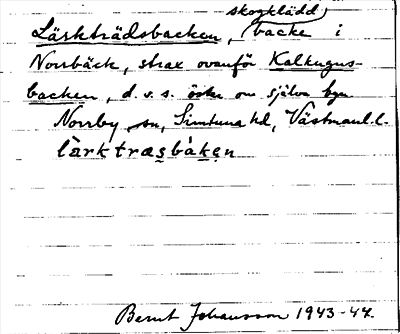 Lärkträdsbacken, skogklädd backe i
Norrbäck, strax ovanför Kalkugns-
backen, d.v.s. öster om själva byn
Norrby sn, Simtuna hd, Västmanl. l.
lärktræsbàken
Bernt Johansson 1943-44.